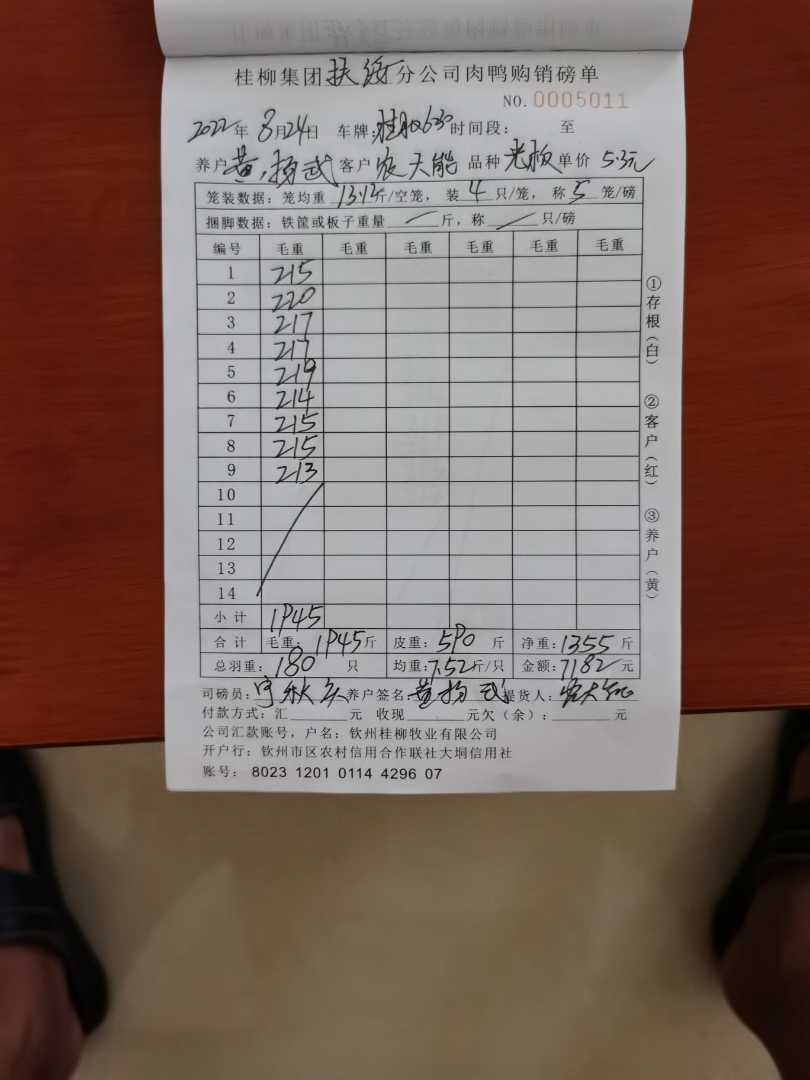 桂柳集团扶绥分公司肉鸭购销磅单
NO. 0005011
2022年8月24日 车牌: 630 时间段: 至
养户 黄 扬武 客户 农天能 品种 光板 单价 5.3元
笼装数据: 笼均重 13.12斤/空笼, 装 4 只/笼, 称 5 笼/磅
捆脚数据: 铁筐或板子重量 / 斤, 称 / 只/磅
编号 毛重 毛重 毛重 毛重 毛重 毛重
1 215
2 220
3 217
4 217
5 219
6 214
7 215
8 215
9 213
10
11
12
13
14
小计 1945
合计 毛重: 1945斤 皮重: 590 斤 净重: 1355 斤
总羽重: 180 只 均重: 7.52斤/只 金额: 7182 元
司磅员: 养户签名: 黄扬武 提货人: 农天能
付款方式: 汇 元 收现 元欠(余): 元
公司汇款账号, 户名: 钦州桂柳牧业有限公司
开户行: 钦州市区农村信用合作联社大垌信用社
账号: 8023 1201 0114 4296 07
①存根(白)
②客户(红)
③养户(黄)